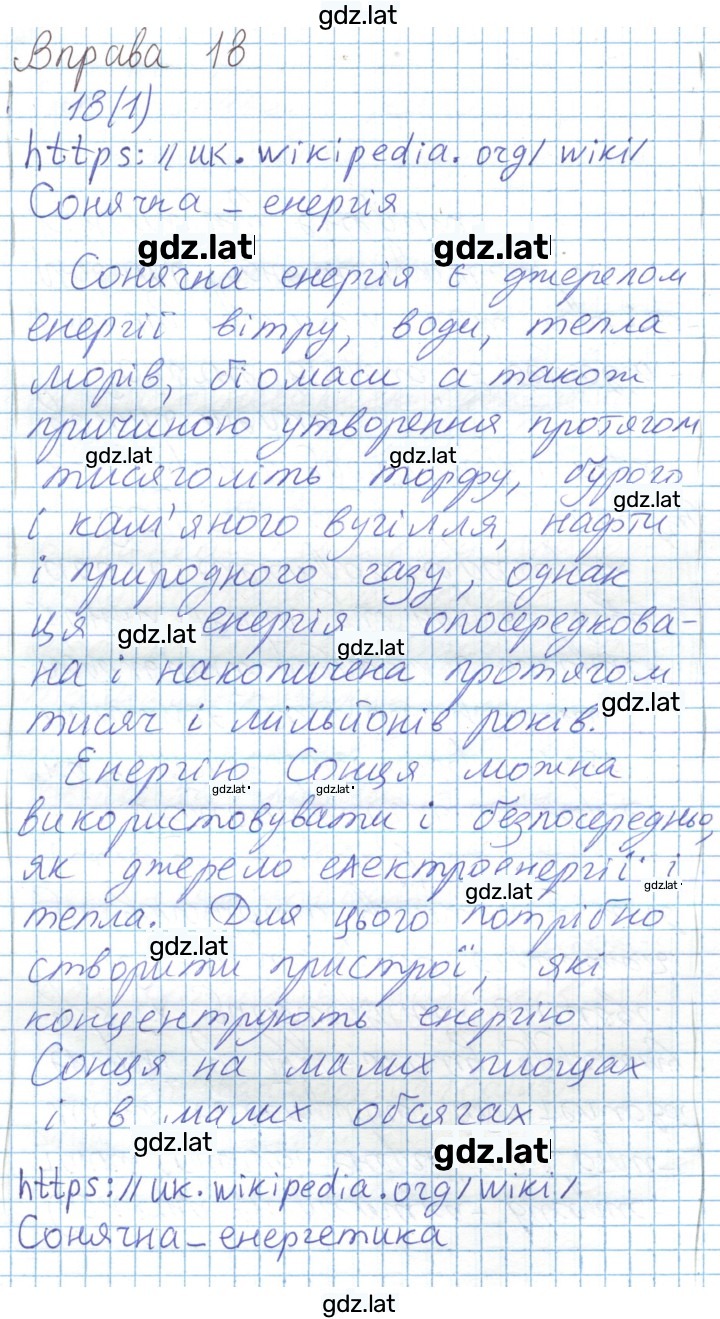 gdz.lat
Вправа 18
18(1)
https://uk.wikipedia.org/wiki/
Сонячна_енергія
gdz.lat gdz.lat
Сонячна енергія є джерелом
енергії вітру, води, тепла
морів, біомаси а також
причиною утворення протягом
gdz.lat gdz.lat
тисяголіть торфу, бурого
gdz.lat
і кам'яного вугілля, нафти
і природного газу, однак
ця енергія опосередкова-
gdz.lat gdz.lat
на і накопичена протягом
gdz.lat
тисяч і мільйонів років.
Енергію Сонця можна
gdz.lat gdz.lat
використовувати і безпосередньо,
як джерело електроенергії і
gdz.lat gdz.lat
тепла. Для цього потрібно
gdz.lat
створити пристрої, які
концентрують енергію
Сонця на малих площах
і в малих обсягах
gdz.lat gdz.lat
https://uk.wikipedia.org/wiki/
Сонячна_енергетика
gdz.lat